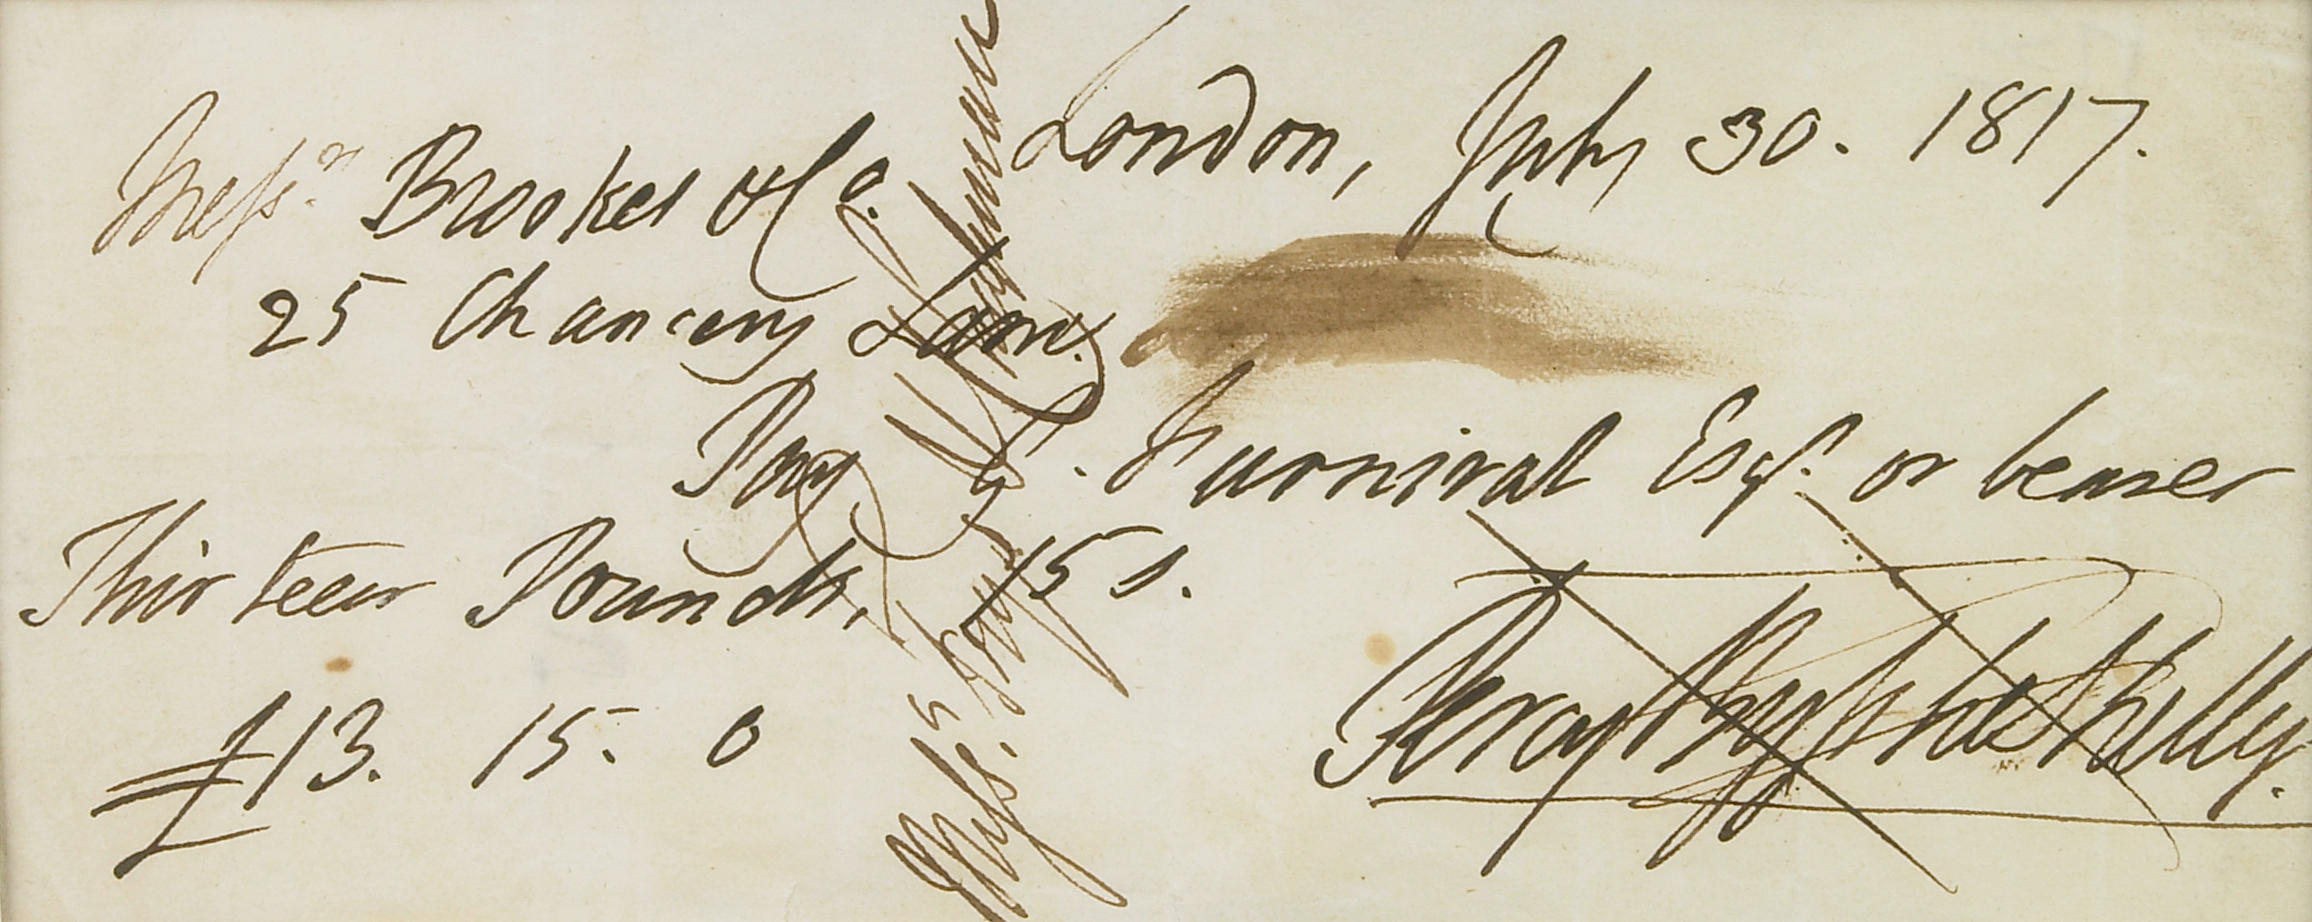 London, July 30. 1817.
Mess.rs Brookes & Co.
25 Chancery Lane.
Pay G. Furnival Esq.r or bearer
Thirteen Pounds, 15 s.
£13. 15. 0
Percy Bysshe Shelley.
Mess.rs